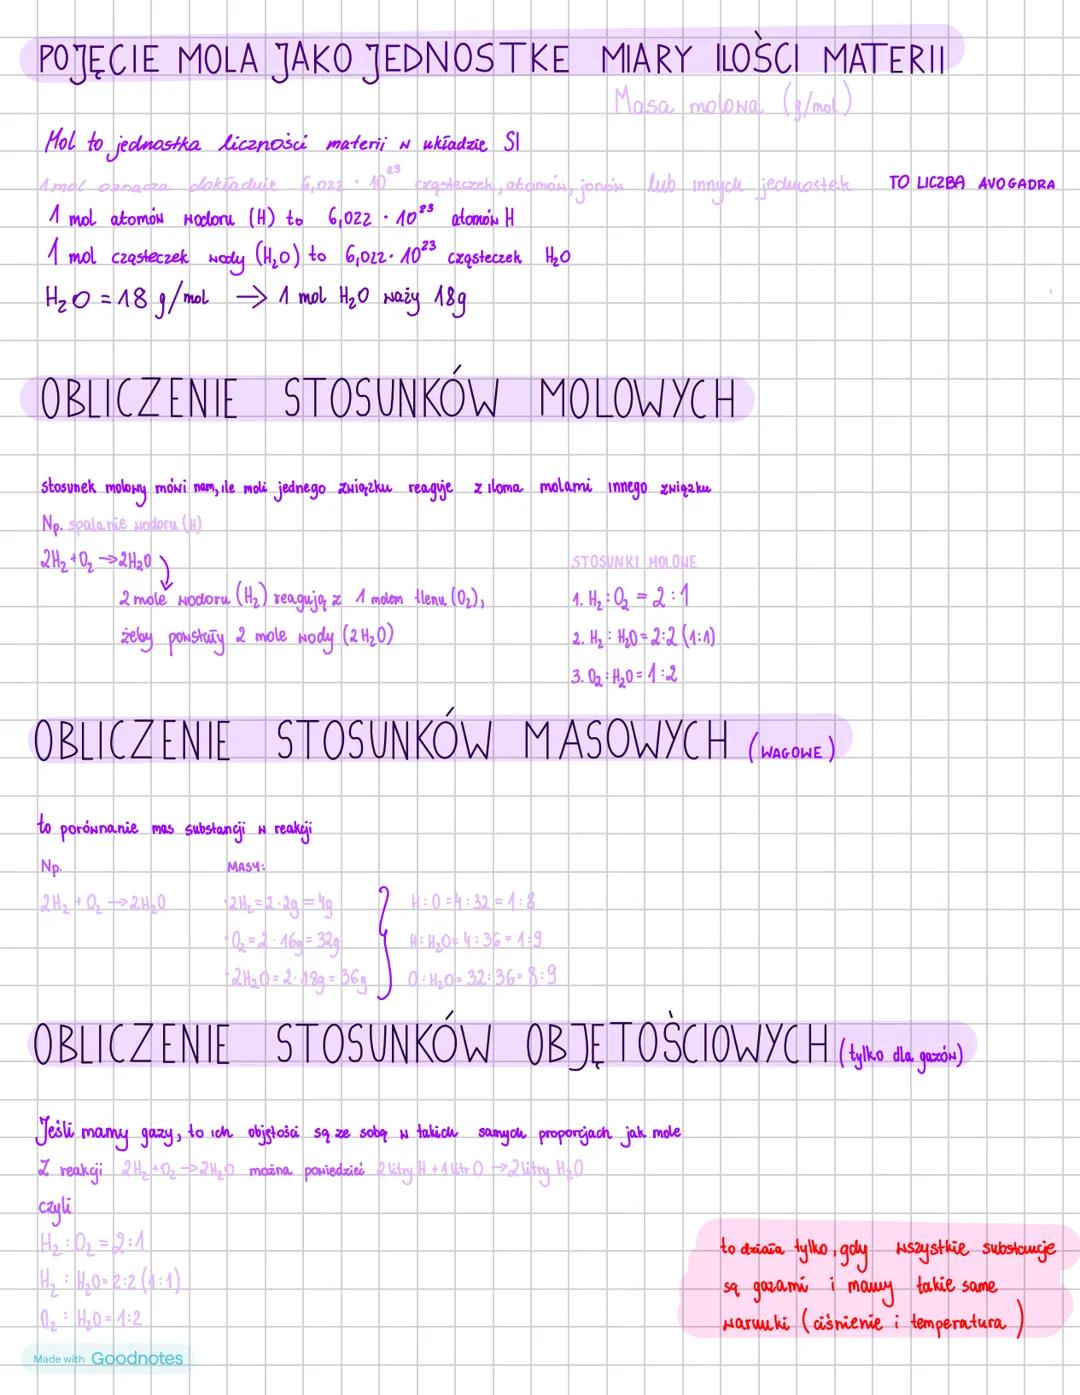 POJĘCIE MOLA JAKO JEDNOSTKE MIARY ILOŚCI MATERII
Masa molowa (g/mol)
Mol to jednostka liczności materii w układzie SI
1 mol oznacza dokładnie 6,022 · 10²³ cząsteczek, atomów, jonów lub innych jednostek TO LICZBA AVOGADRA
1 mol atomów wodoru (H) to 6,022 · 10²³ atomów H
1 mol cząsteczek wody (H₂O) to 6,022 · 10²³ cząsteczek H₂O
H₂O = 18 g/mol → 1 mol H₂O waży 18g
OBLICZENIE STOSUNKÓW MOLOWYCH
stosunek molowy mówi nam, ile moli jednego związku reaguje z iloma molami innego związku
Np. spalanie wodoru (H)
2H₂ + O₂ → 2H₂O
2 mole wodoru (H₂) reagują z 1 molem tlenu (O₂),
żeby powstały 2 mole wody (2H₂O)
STOSUNKI MOLOWE
1. H₂ : O₂ = 2 : 1
2. H₂ : H₂O = 2:2 (1:1)
3. O₂ : H₂O = 1 : 2
OBLICZENIE STOSUNKÓW MASOWYCH (WAGOWE)
to porównanie mas substancji w reakcji
Np.
2H₂ + O₂ → 2H₂O
MASY:
· 2H₂ = 2 · 2g = 4g
· O₂ = 2 · 16g = 32g
· 2H₂O = 2 · 18g = 36g
H : O = 4 : 32 = 1 : 8
H : H₂O = 4 : 36 = 1:9
O : H₂O = 32:36 = 8:9
OBLICZENIE STOSUNKÓW OBJĘTOŚCIOWYCH (tylko dla gazów)
Jeśli mamy gazy, to ich objętości są ze sobą w takich samych proporcjach jak mole
Z reakcji 2H₂ + O₂ → 2H₂O można powiedzieć 2 litry H + 1 litr O → 2 litry H₂O
czyli
H₂ : O₂ = 2:1
H₂ : H₂O = 2:2 (1:1)
O₂ : H₂O = 1:2
to działa tylko, gdy wszystkie substancje
są gazami i mamy takie same
warunki (ciśnienie i temperatura)
Made with Goodnotes